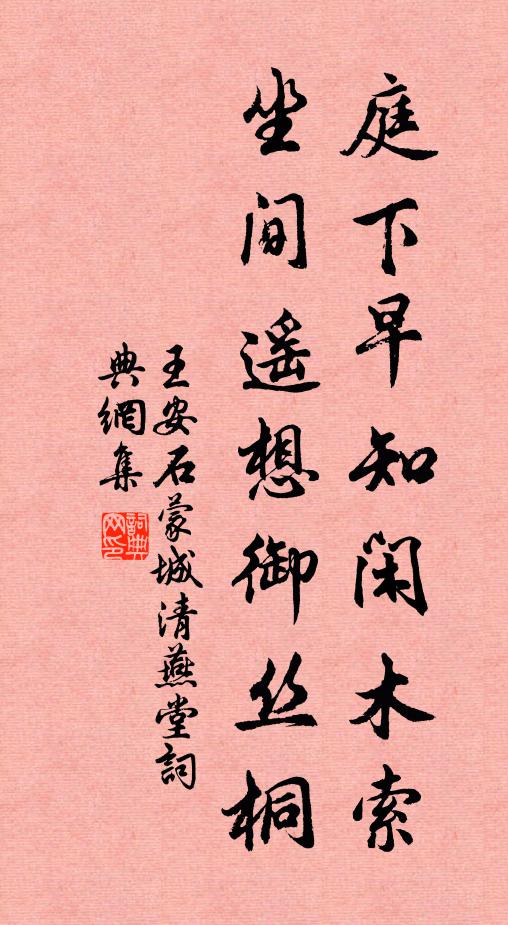 庭下早知闲木索
坐间遥想御丝桐
王安石蒙城清燕堂詞
典網集
詞典网印